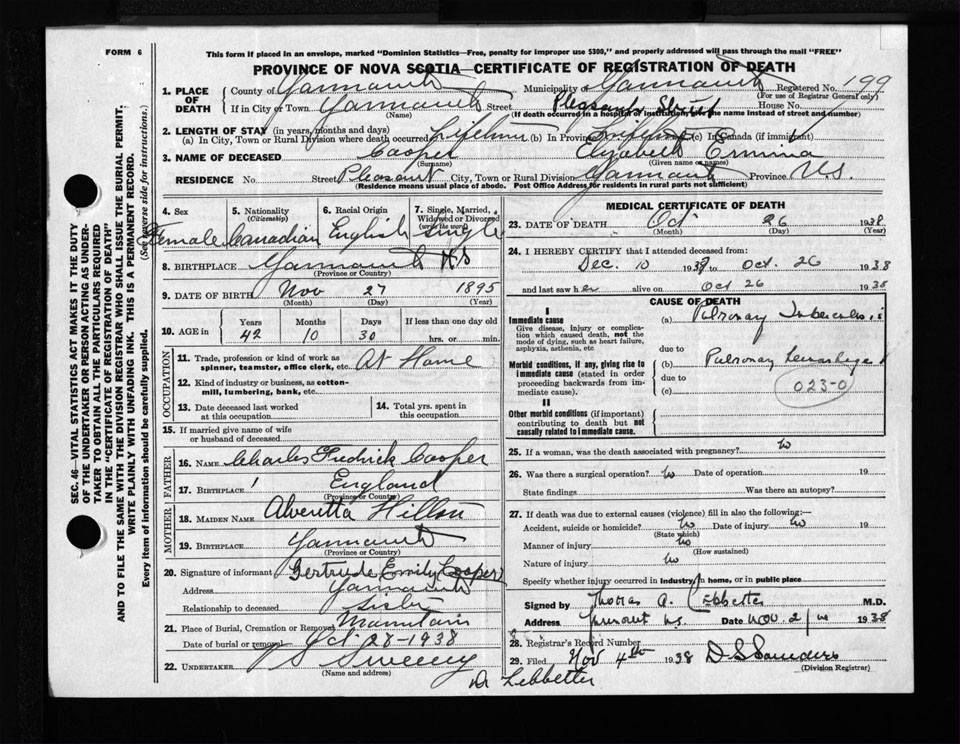 FORM 6
This form if placed in an envelope, marked "Dominion Statistics—Free, penalty for improper use $300," and properly addressed will pass through the mail "FREE"
PROVINCE OF NOVA SCOTIA—CERTIFICATE OF REGISTRATION OF DEATH
SEC. 46—VITAL STATISTICS ACT MAKES IT THE DUTY
OF THE UNDERTAKER OR PERSON ACTING AS UNDER-
TAKER TO OBTAIN ALL THE PARTICULARS REQUIRED
IN THE "CERTIFICATE OF REGISTRATION OF DEATH"
AND TO FILE THE SAME WITH THE DIVISION REGISTRAR WHO SHALL ISSUE THE BURIAL PERMIT.
WRITE PLAINLY WITH UNFADING INK. THIS IS A PERMANENT RECORD.
Every item of information should be carefully supplied. (See reverse side for instructions.)
1. PLACE OF DEATH
County of Yarmouth Municipality of Yarmouth Registered No. 199
(For use of Registrar General only)
If in City or Town Yarmouth Street Pleasant Street House No.
(Name) (If death occurred in a hospital or institution, give the name instead of street and number)
2. LENGTH OF STAY (in years, months and days)
(a) In City, Town or Rural Division where death occurred Lifetime (b) In Province Lifetime (c) In Canada (if immigrant)
3. NAME OF DECEASED Cooper Elizabeth Ermina
(Surname) (Given name or names)
RESIDENCE No. Street Pleasant City, Town or Rural Division Yarmouth Province N.S.
(Residence means usual place of abode. Post Office Address for residents in rural parts not sufficient)
4. Sex Female
5. Nationality (Citizenship) Canadian
6. Racial Origin English
7. Single, Married, Widowed or Divorced (write the word) Single
8. BIRTHPLACE Yarmouth N S
(Province or Country)
9. DATE OF BIRTH Nov 27 1895
(Month) (Day) (Year)
10. AGE in Years Months Days If less than one day old
42 10 30 hrs. or min.
OCCUPATION
11. Trade, profession or kind of work as spinner, teamster, office clerk, etc. At Home
12. Kind of industry or business, as cotton-mill, lumbering, bank, etc.
13. Date deceased last worked at this occupation
14. Total yrs. spent in this occupation
15. If married give name of wife or husband of deceased
FATHER
16. NAME Charles Fredrick Cooper
17. BIRTHPLACE England
(Province or Country)
MOTHER
18. MAIDEN NAME Alveretta Hilton
19. BIRTHPLACE Yarmouth
(Province or Country)
20. Signature of informant Gertrude Emily Cooper
Address Yarmouth
Relationship to deceased Sister
21. Place of Burial, Cremation or Removal Mountain
Date of burial or removal Oct 28-1938
22. UNDERTAKER Sweeny
(Name and address)
Dr Lebbetter
MEDICAL CERTIFICATE OF DEATH
23. DATE OF DEATH Oct 26 1938
(Month) (Day) (Year)
24. I HEREBY CERTIFY that I attended deceased from:
Dec. 10 193 to Oct. 26 1938
and last saw her alive on Oct 26 1938
CAUSE OF DEATH
I
Immediate cause
Give disease, injury or complication which caused death, not the mode of dying, such as heart failure, asphyxia, asthenia, etc.
(a) Pulmonary Tuberculosis
due to
Morbid conditions, if any, giving rise to immediate cause (stated in order proceeding backwards from immediate cause).
(b) Pulmonary
due to
(c)
023-0
II
Other morbid conditions (if important) contributing to death but not causally related to immediate cause.
25. If a woman, was the death associated with pregnancy? No
26. Was there a surgical operation? No Date of operation 19
State findings Was there an autopsy?
27. If death was due to external causes (violence) fill in also the following:—
Accident, suicide or homicide? No Date of injury No 19
(State which)
Manner of injury No
(How sustained)
Nature of injury No
Specify whether injury occurred in industry, in home, or in public place
Signed by Thomas A. Lebbetter M.D.
Address Yarmouth N.S. Date Nov. 2 1938
28. Registrar's Record Number
29. Filed Nov 4th 1938 D S Saunders
(Division Registrar)